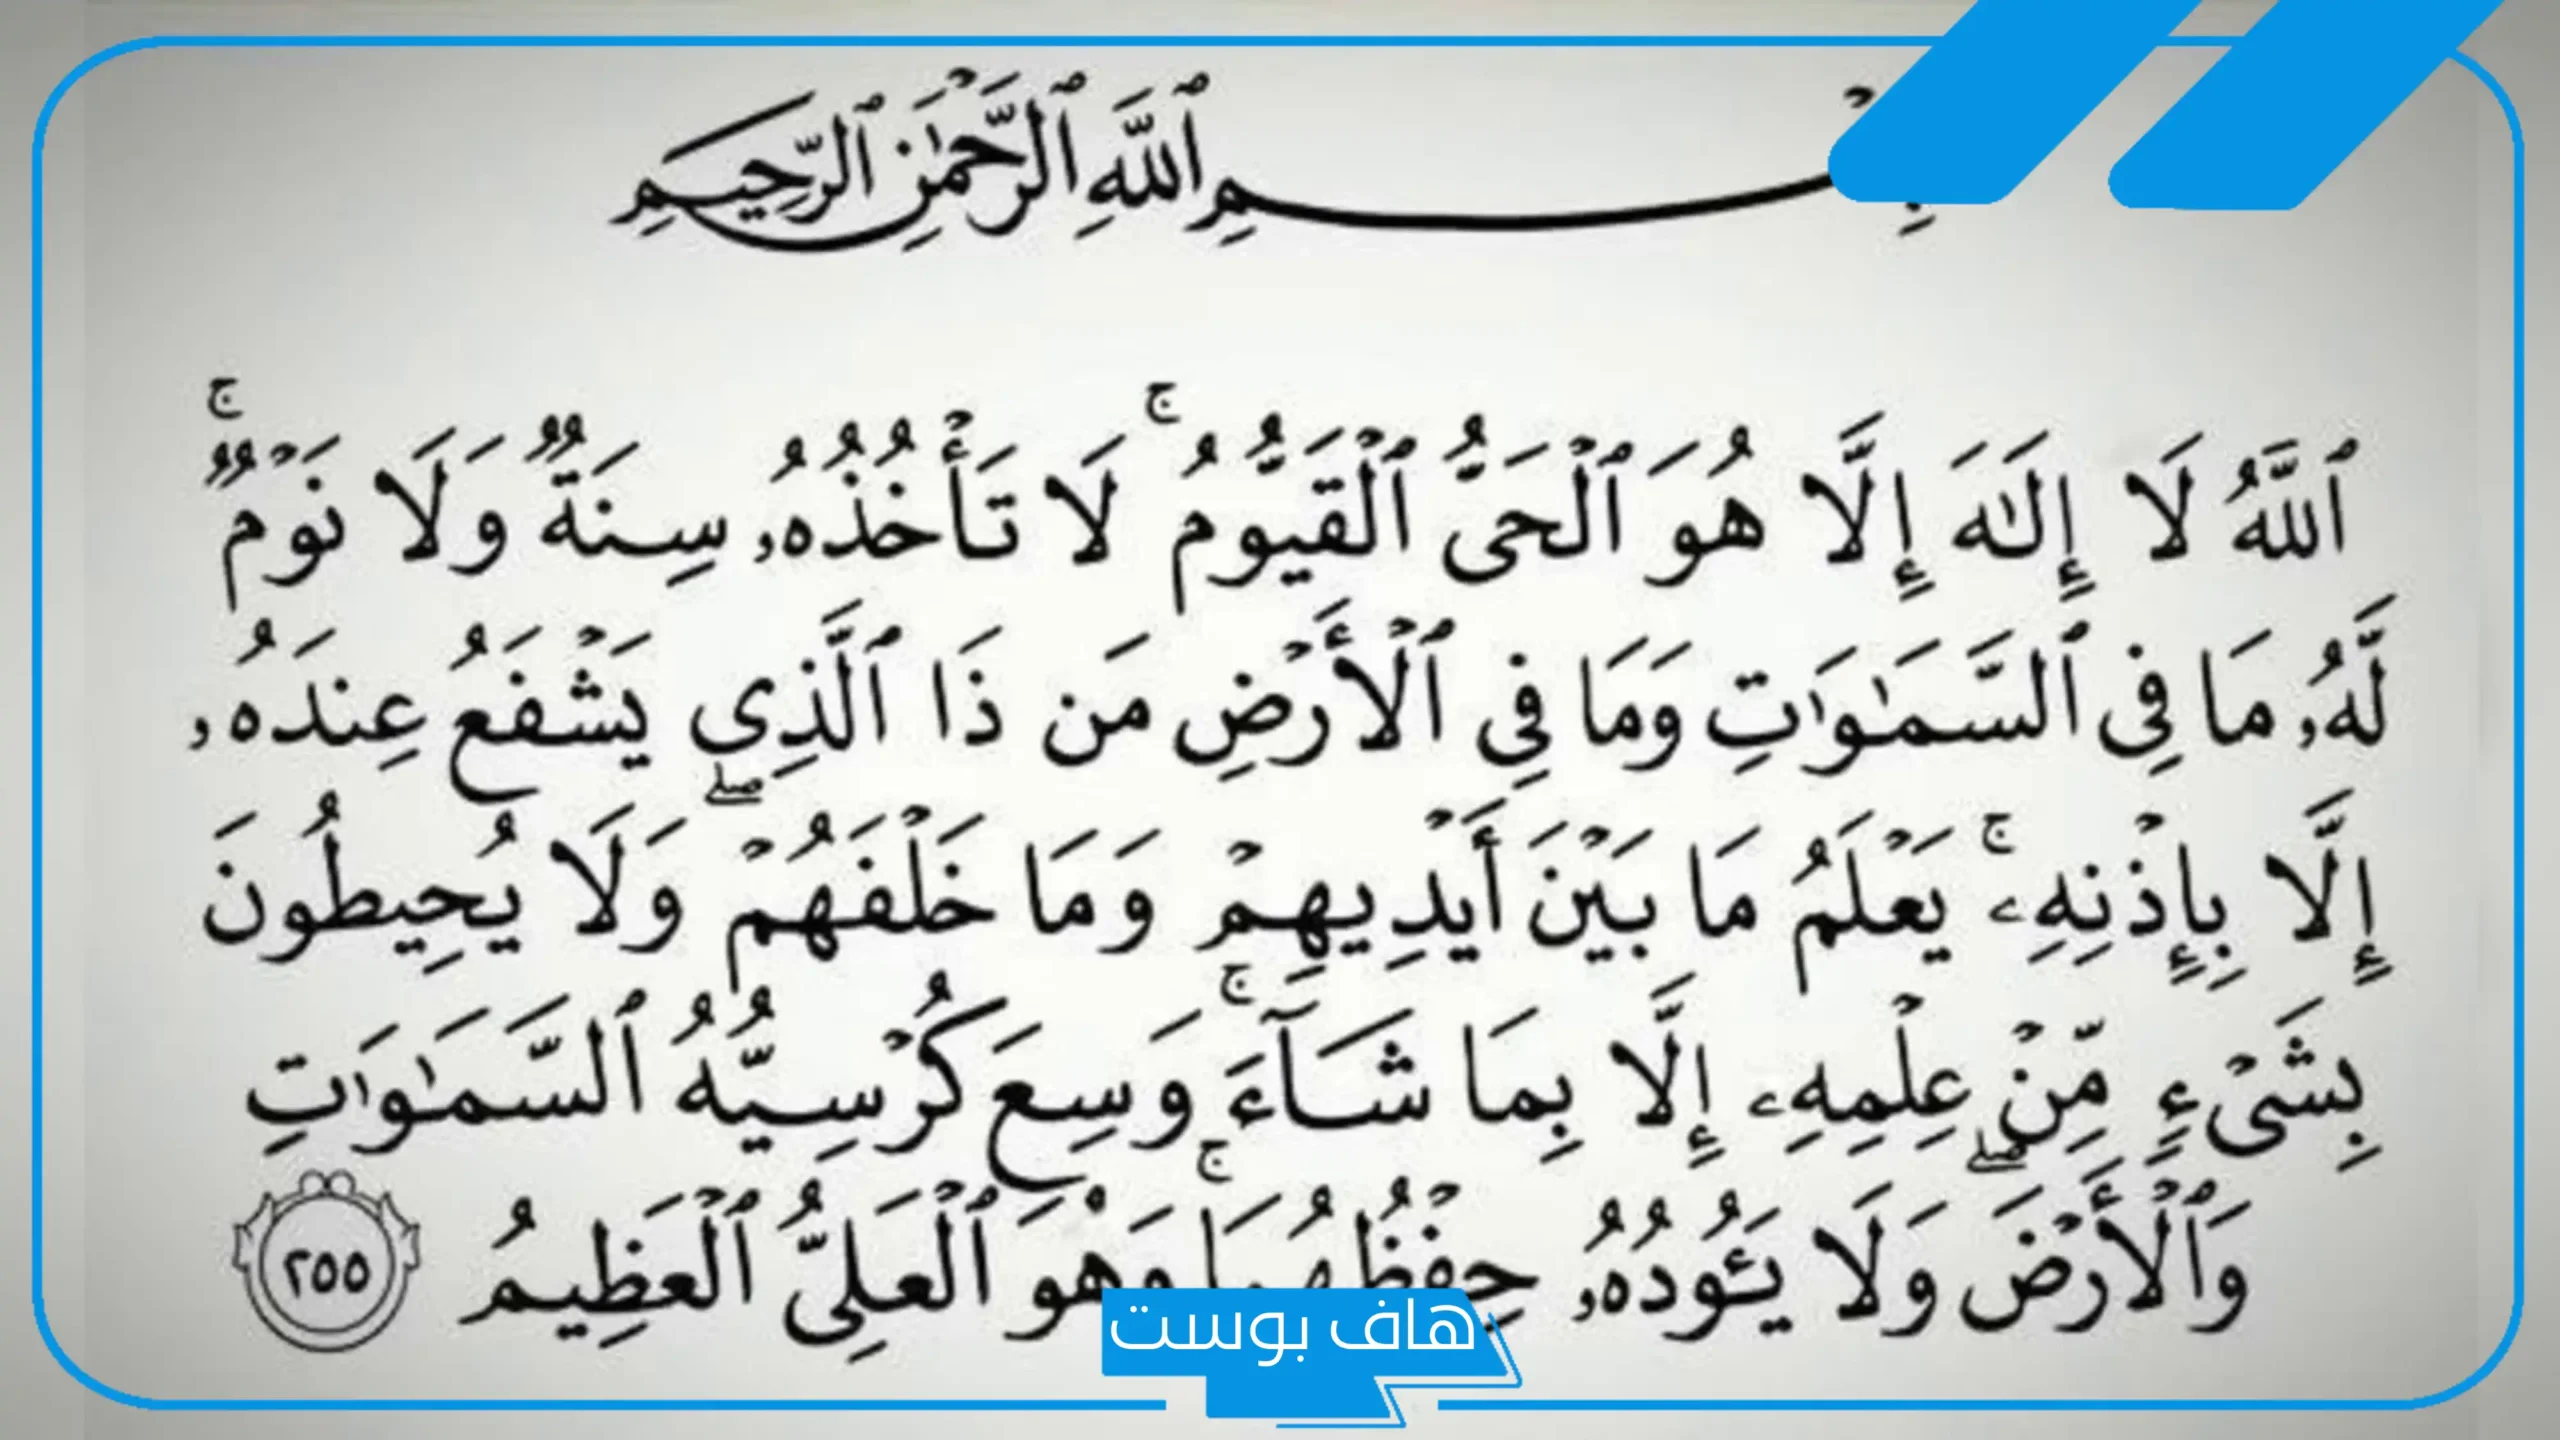 بِسْمِ ٱللَّهِ ٱلرَّحْمَٰنِ ٱلرَّحِيمِ
ٱللَّهُ لَا إِلَٰهَ إِلَّا هُوَ ٱلْحَىُّ ٱلْقَيُّومُ ۚ لَا تَأْخُذُهُۥ سِنَةٌ وَلَا نَوْمٌ ۚ
لَّهُۥ مَا فِى ٱلسَّمَٰوَٰتِ وَمَا فِى ٱلْأَرْضِ مَن ذَا ٱلَّذِى يَشْفَعُ عِندَهُۥ
إِلَّا بِإِذْنِهِۦ ۚ يَعْلَمُ مَا بَيْنَ أَيْدِيهِمْ وَمَا خَلْفَهُمْ ۖ وَلَا يُحِيطُونَ
بِشَىْءٍ مِّنْ عِلْمِهِۦ إِلَّا بِمَا شَآءَ ۚ وَسِعَ كُرْسِيُّهُ ٱلسَّمَٰوَٰتِ
وَٱلْأَرْضَ ۖ وَلَا يَـُٔودُهُۥ حِفْظُهُمَا ۚ وَهْوَ ٱلْعَلِىُّ ٱلْعَظِيمُ ٢٥٥
هاف بوست